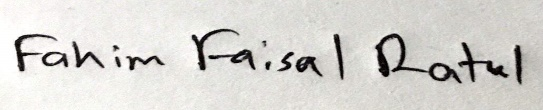 Fahim Faisal Ratul